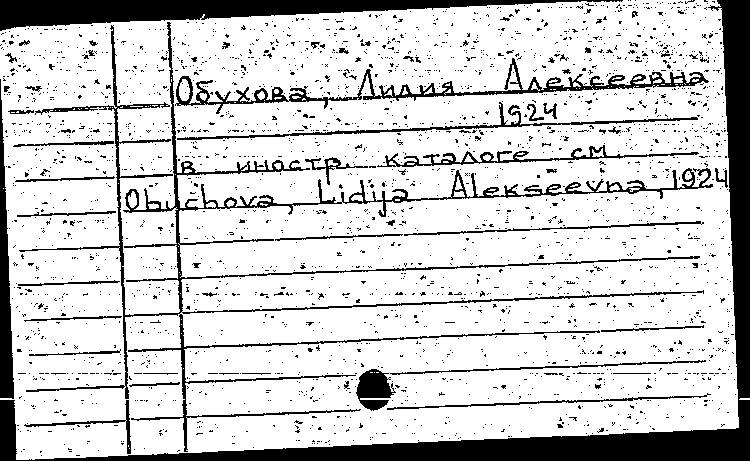 Обухова, Лидия Алексеевна
1924
в иностр. каталоге см.
Obuchova, Lidija Alekseevna, 1924